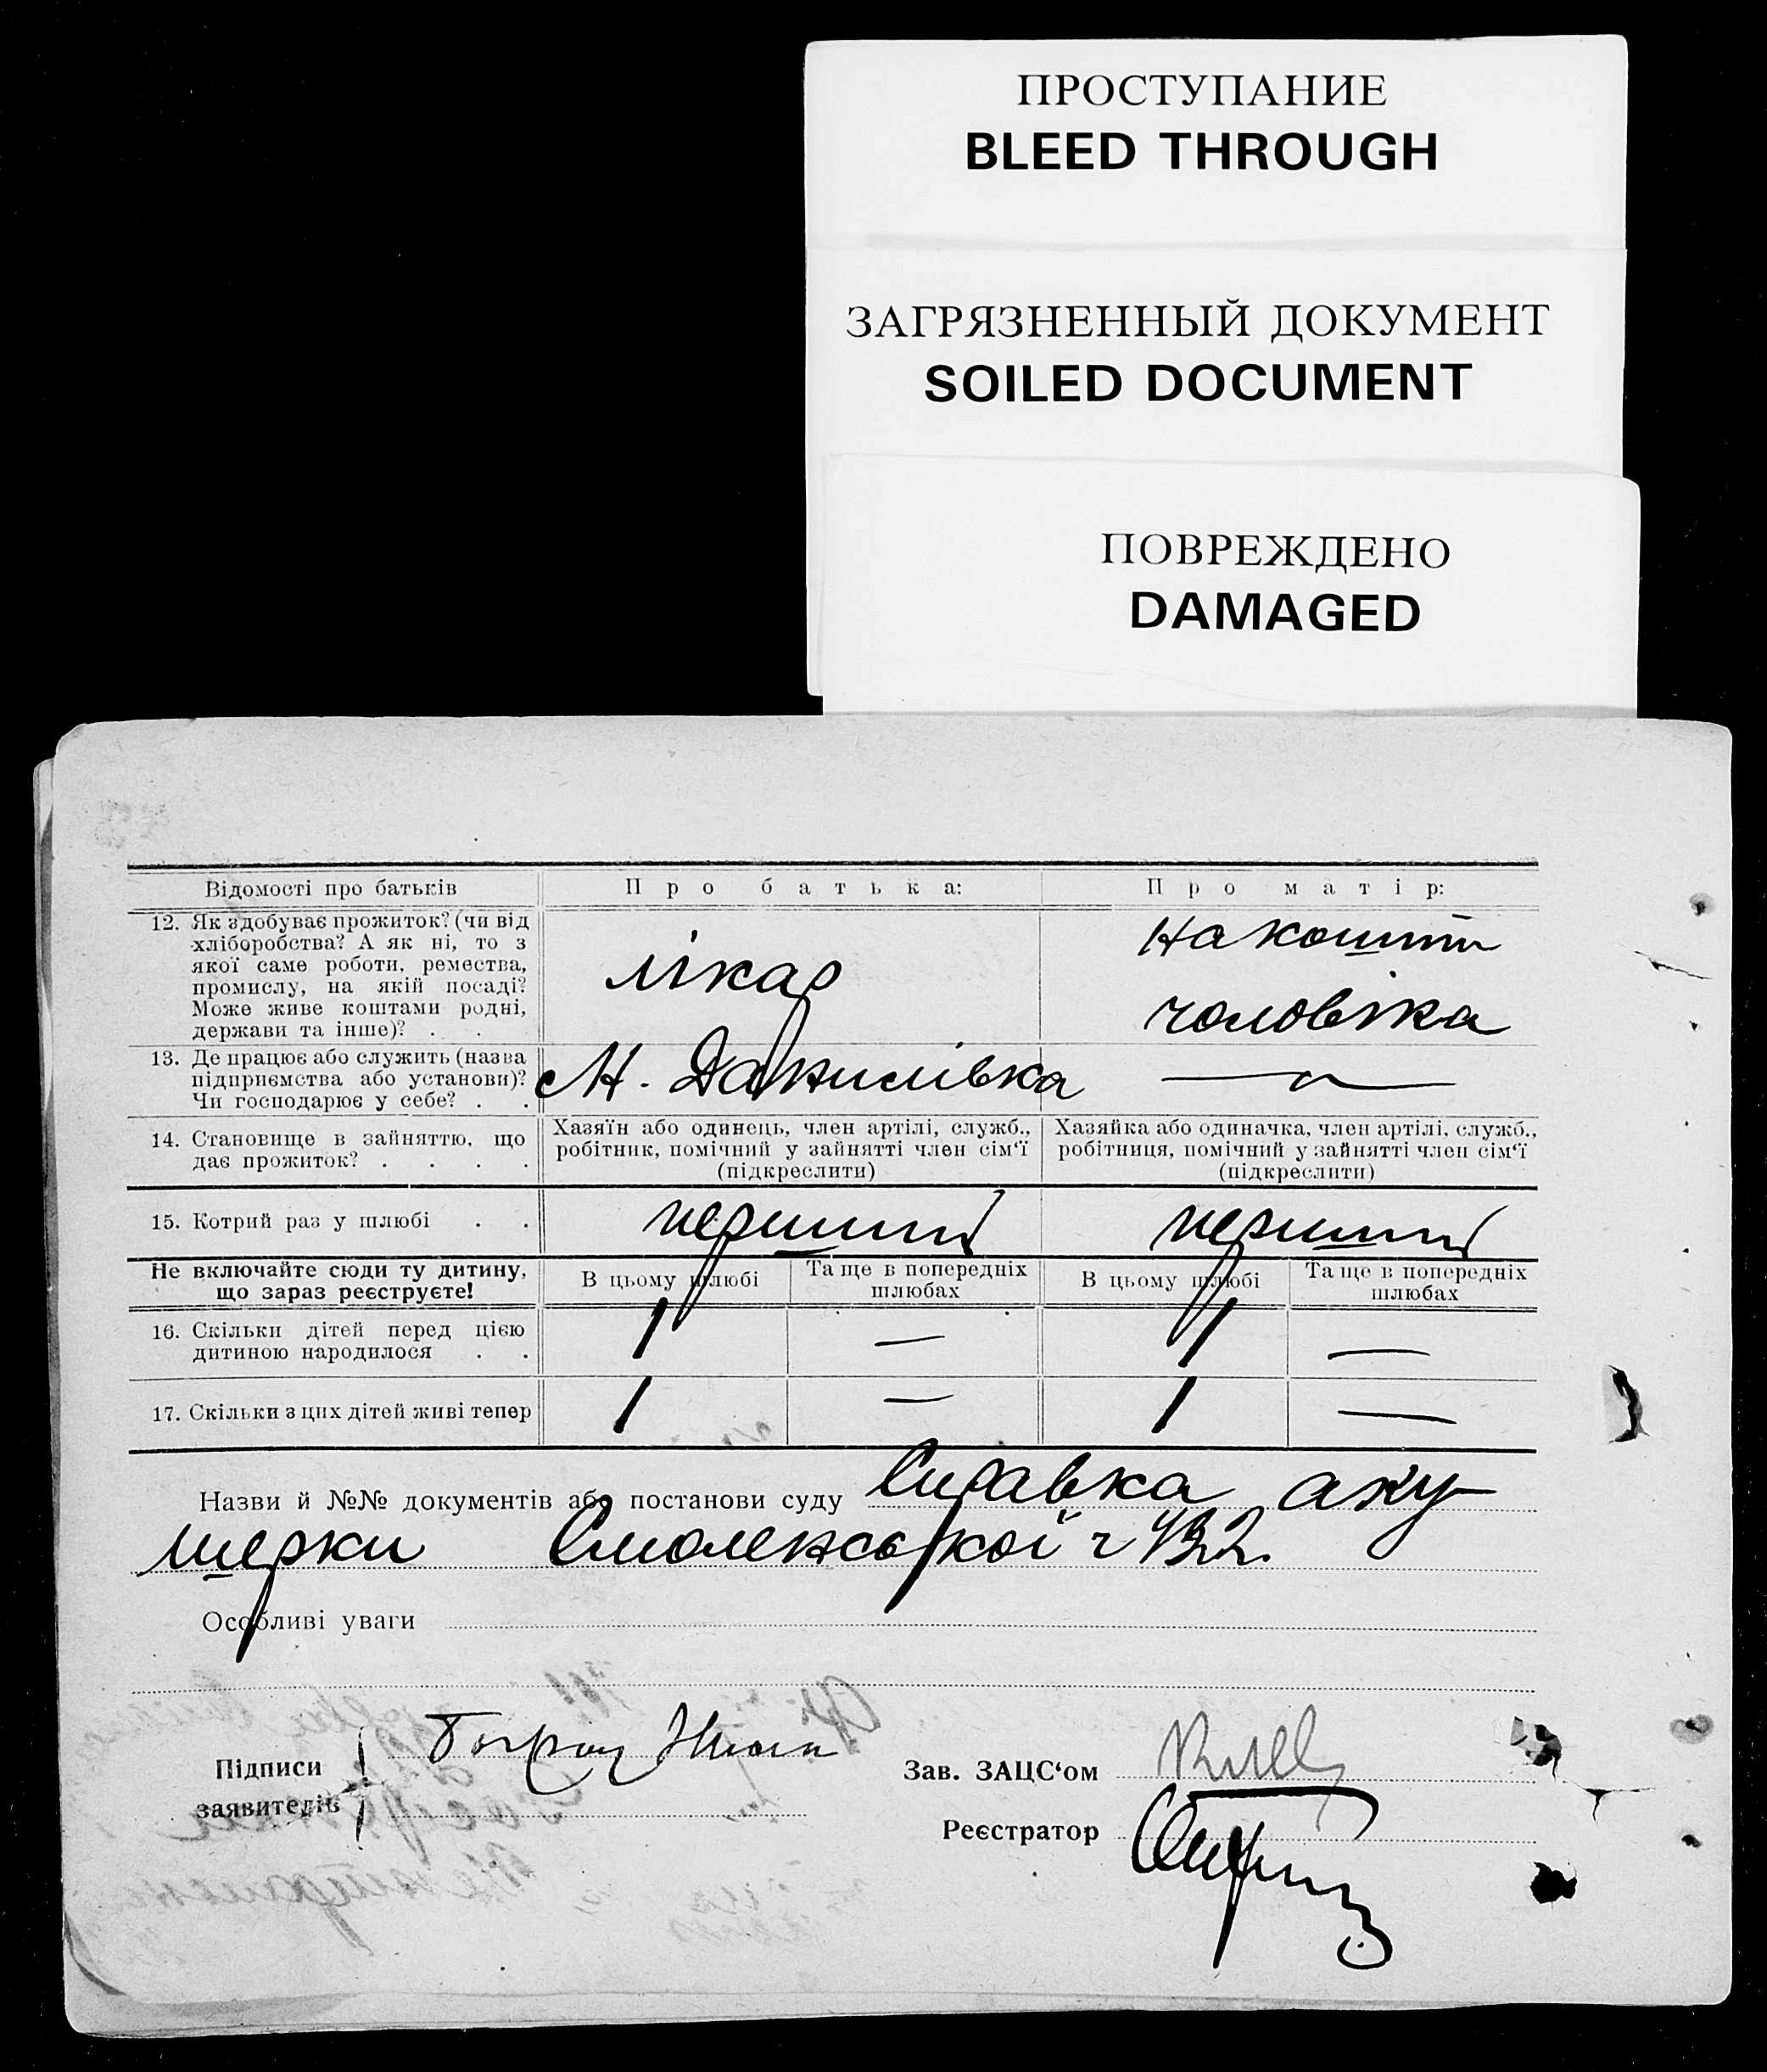 ПРОСТУПАНИЕ
BLEED THROUGH
ЗАГРЯЗНЕННЫЙ ДОКУМЕНТ
SOILED DOCUMENT
ПОВРЕЖДЕНО
DAMAGED
Відомості про батьків
Про батька:
Про матір:
12. Як здобуває прожиток? (чи від
хліборобства? А як ні, то з
якої саме роботи, ремества,
промислу, на якій посаді?
Може живе коштами родні,
держави та інше)? . .
лікар
на кошти
чоловіка
13. Де працює або служить (назва
підприємства або установи)?
Чи господарює у себе? . .
М. Данилівка
—
14. Становище в зайняттю, що
дає прожиток? . . . .
Хазяїн або одинець, член артілі, служб.,
робітник, помічний у зайнятті член сім‘ї
(підкреслити)
Хазяйка або одиначка, член артілі, служб.,
робітниця, помічний у зайнятті член сім‘ї
(підкреслити)
15. Котрий раз у шлюбі . .
перший
перший
Не включайте сюди ту дитину,
що зараз реєструєте!
В цьому шлюбі
Та ще в попередніх
шлюбах
В цьому шлюбі
Та ще в попередніх
шлюбах
16. Скільки дітей перед цією
дитиною народилося . .
1 — 1 —
17. Скільки з цих дітей живі тепер
1 — 1 —
Назви й №№ документів або постанови суду Справка аку
шерки Смоленської
Особливі уваги
Підписи
заявителів
Зав. ЗАЦС‘ом
Реєстратор